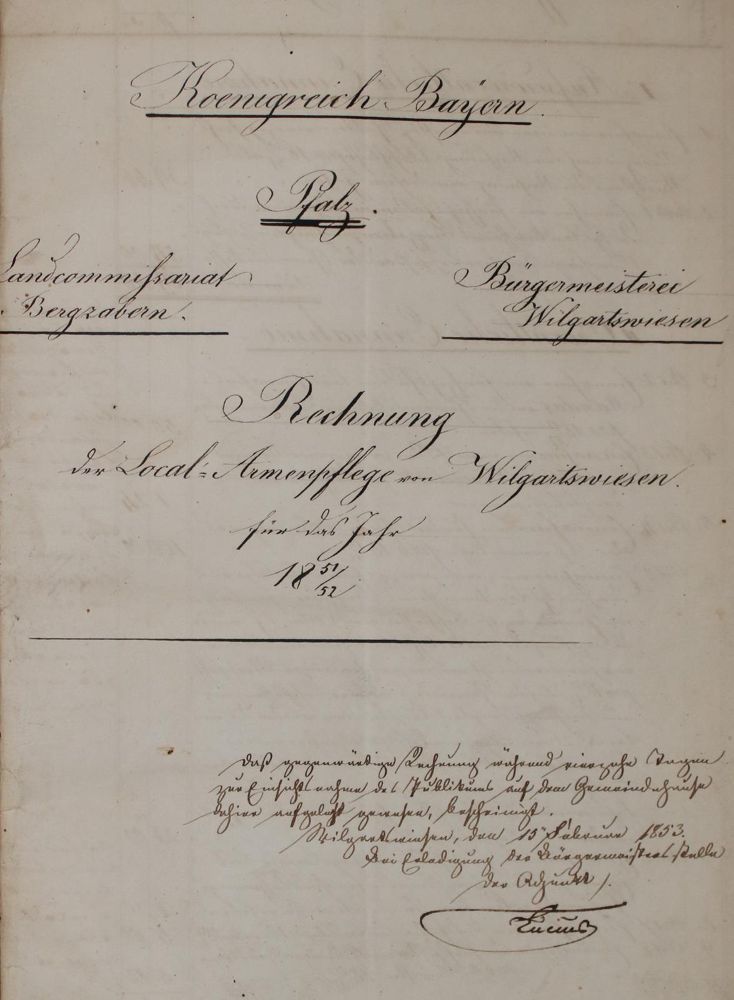 Koenigreich Bayern.
Pfalz.
Landcommissariat
Bergzabern.
Bürgermeisterei
Wilgartswiesen
Rechnung
der Local-Armenpflege von Wilgartswiesen.
für das Jahr
18 51/52
Daß gegenwärtige Rechnung während vierzehn Tagen
zur Einsichtsnahme des Publikums auf dem Gemeindehause
dahier aufgelegt gewesen, bescheinigt.
Wilgartswiesen, den 15 Februar 1853.
Bei Erledigung der Bürgermeisters stelle
der Adjunkt